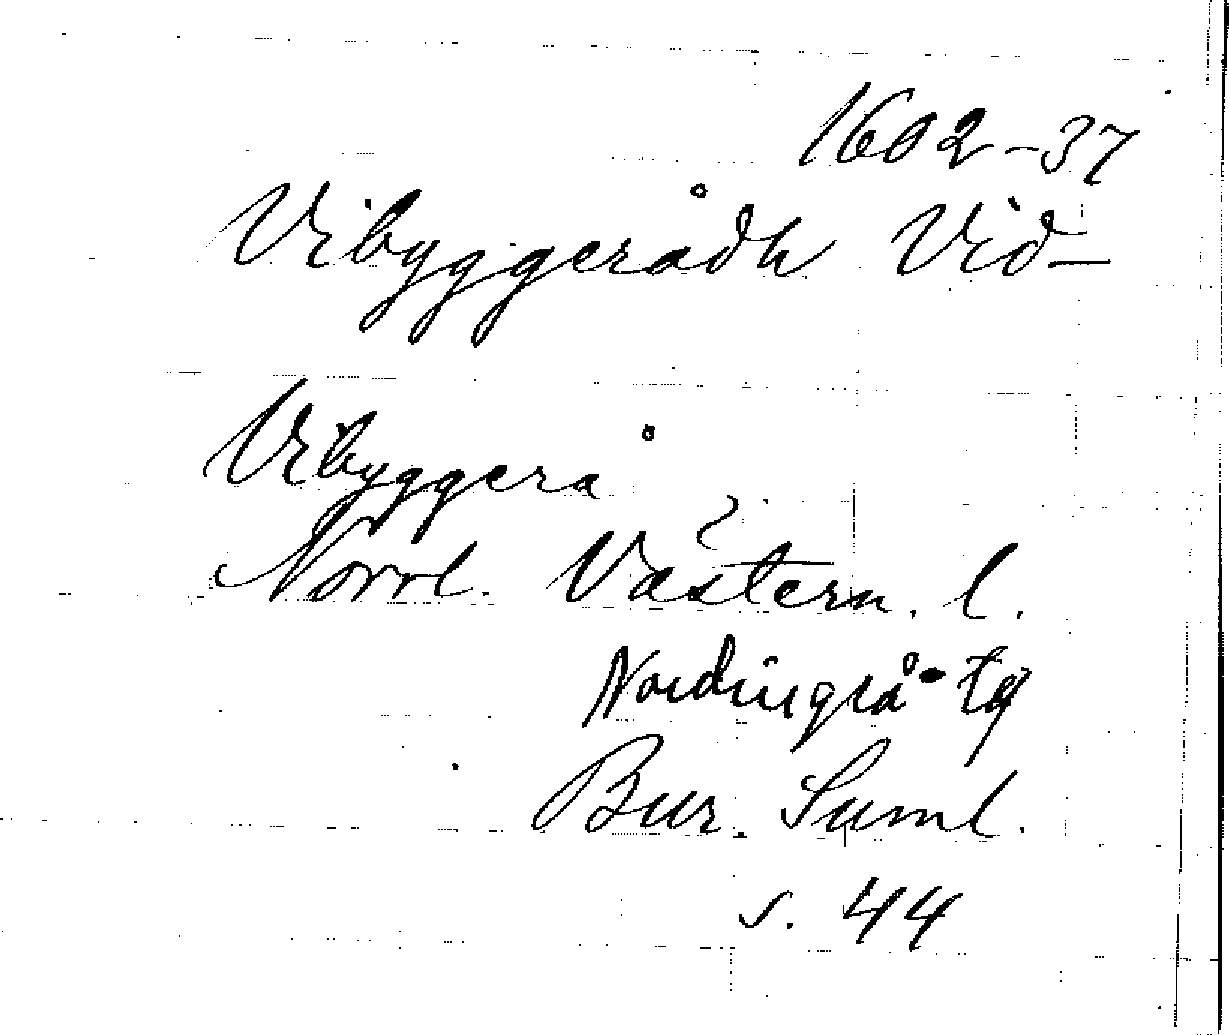 1602-37
Vibyggerådh Vid-
Vibyggerå
Norrl. Västern. l.
Nordingrå tg
Bur. Suml.
s. 44